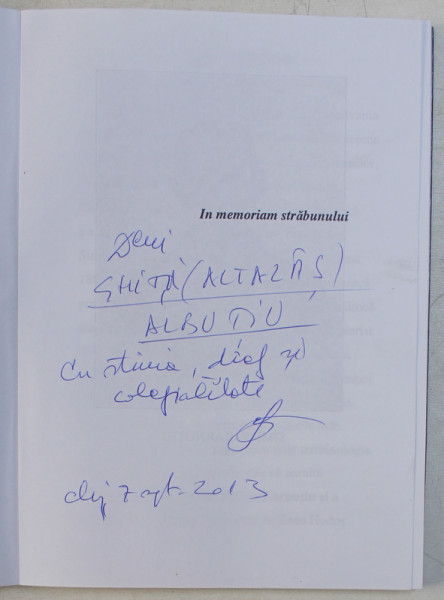 In memoriam străbunului
GHIȚĂ (ALTAZÂȘ)
ALBUȚIU
Cu stima, drag și
colegialitate
Cluj 7 spt. 2013